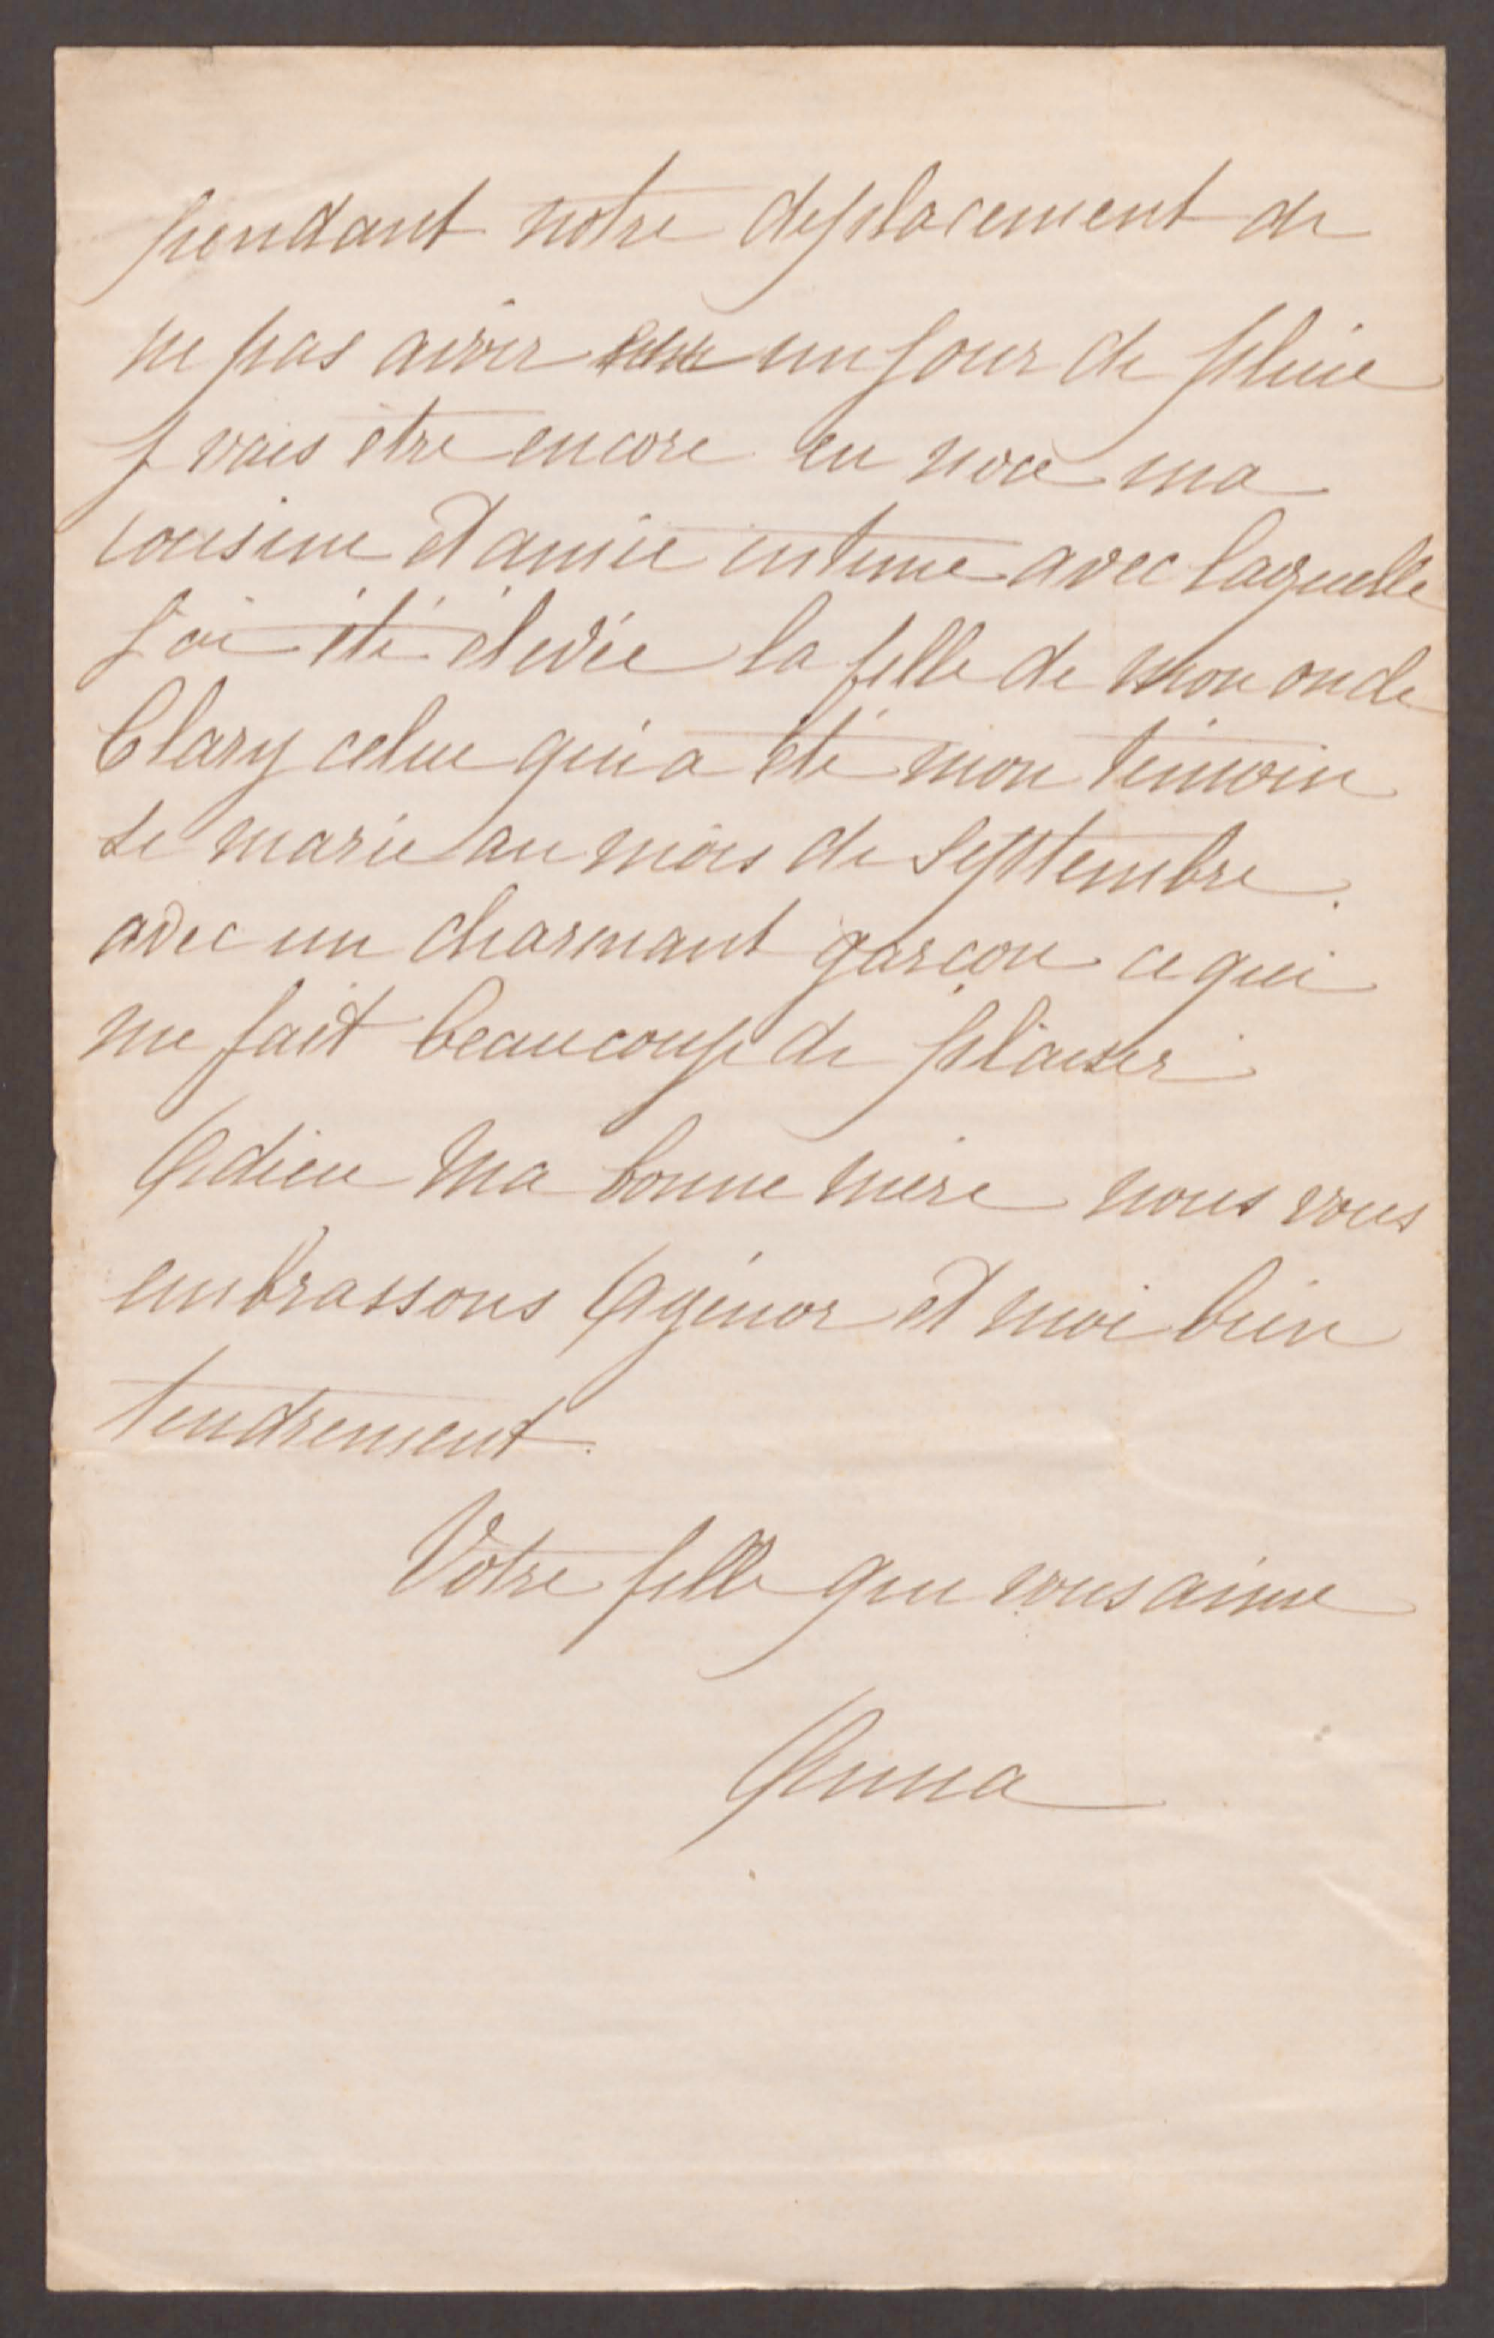 pendant notre deplacement de
ne pas avoir un jour de pluie
J vais etre encore en noce ma
cousine et amie intime avec laquelle
J'ai été élevée la fille de mon oncle
Clary celui qui a été mon témoin
se marie au mois de Septembre.
avec un charmant garçon ce qui
me fait beaucoup de plaisir
Adieu Ma bonne mère nous vous
embrassons Agénor et moi bien
tendrement.
Votre fille qui vous aime
Anna